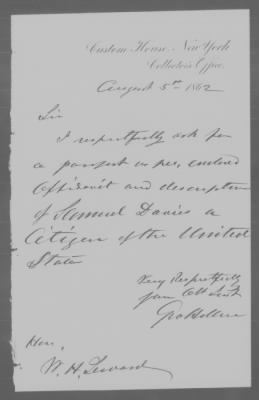 Custom House, New York
Collector's Office,
August 5th 1862
Sir
I respectfully ask for
a passport as per enclosed
affidavit and description
of Samuel Davies a
Citizen of the United
States
Very Respectfully
your Obt Svt
Hon.
W. H. Seward